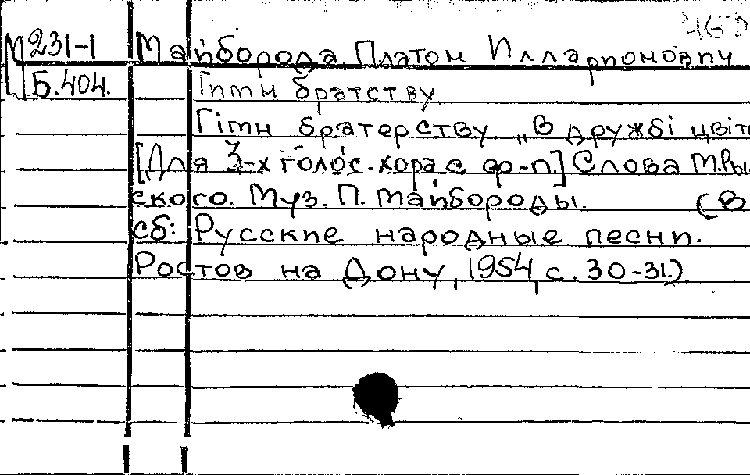 М231-1 Майборода Платон Илларионович
Б.404. Гимн братству
Гімн братерству „В дружбі цвіт
[Для 3-х голос. хора с ф-п.] Слова М. Ры
ского. Муз. П. Майбороды. (В
сб: Русские народные песни.
Ростов на Дону, 1954, с. 30-31.)